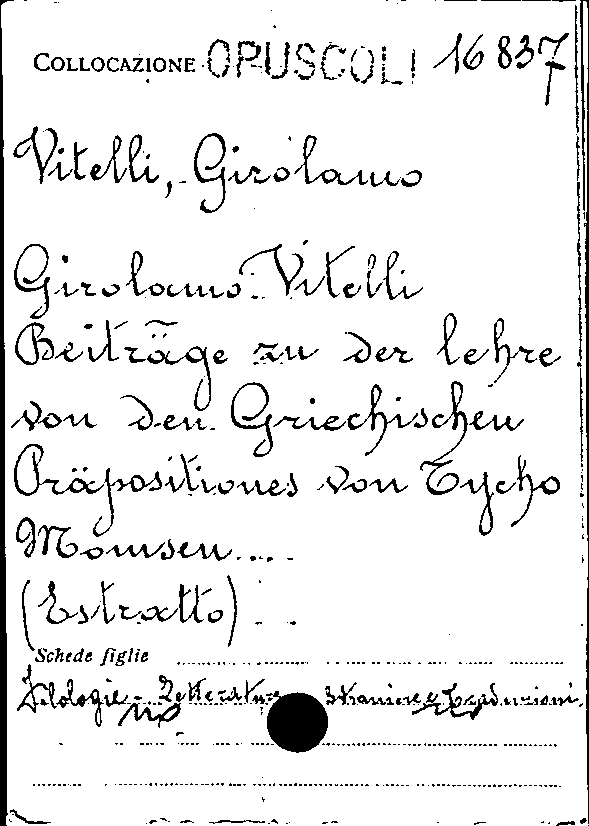 COLLOCAZIONE OPUSCOLI 16837
Vitelli, Girolamo
Girolamo Vitelli
Beiträge zu der lehre
von den Griechischen
Präpositiones von Tycho
Momsen....
(Estratto)...
Schede figlie
Filologie - Letterature straniere e traduzioni.